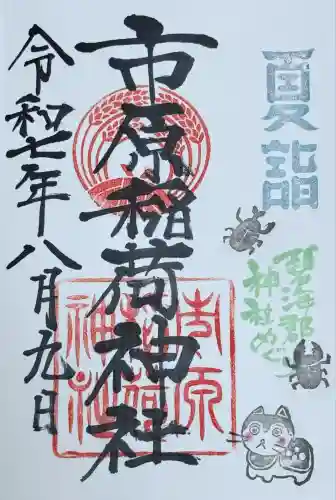 夏詣
碧海郡
神社めぐり
市原稲荷神社
市原
稲荷
神社
令和七年八月九日